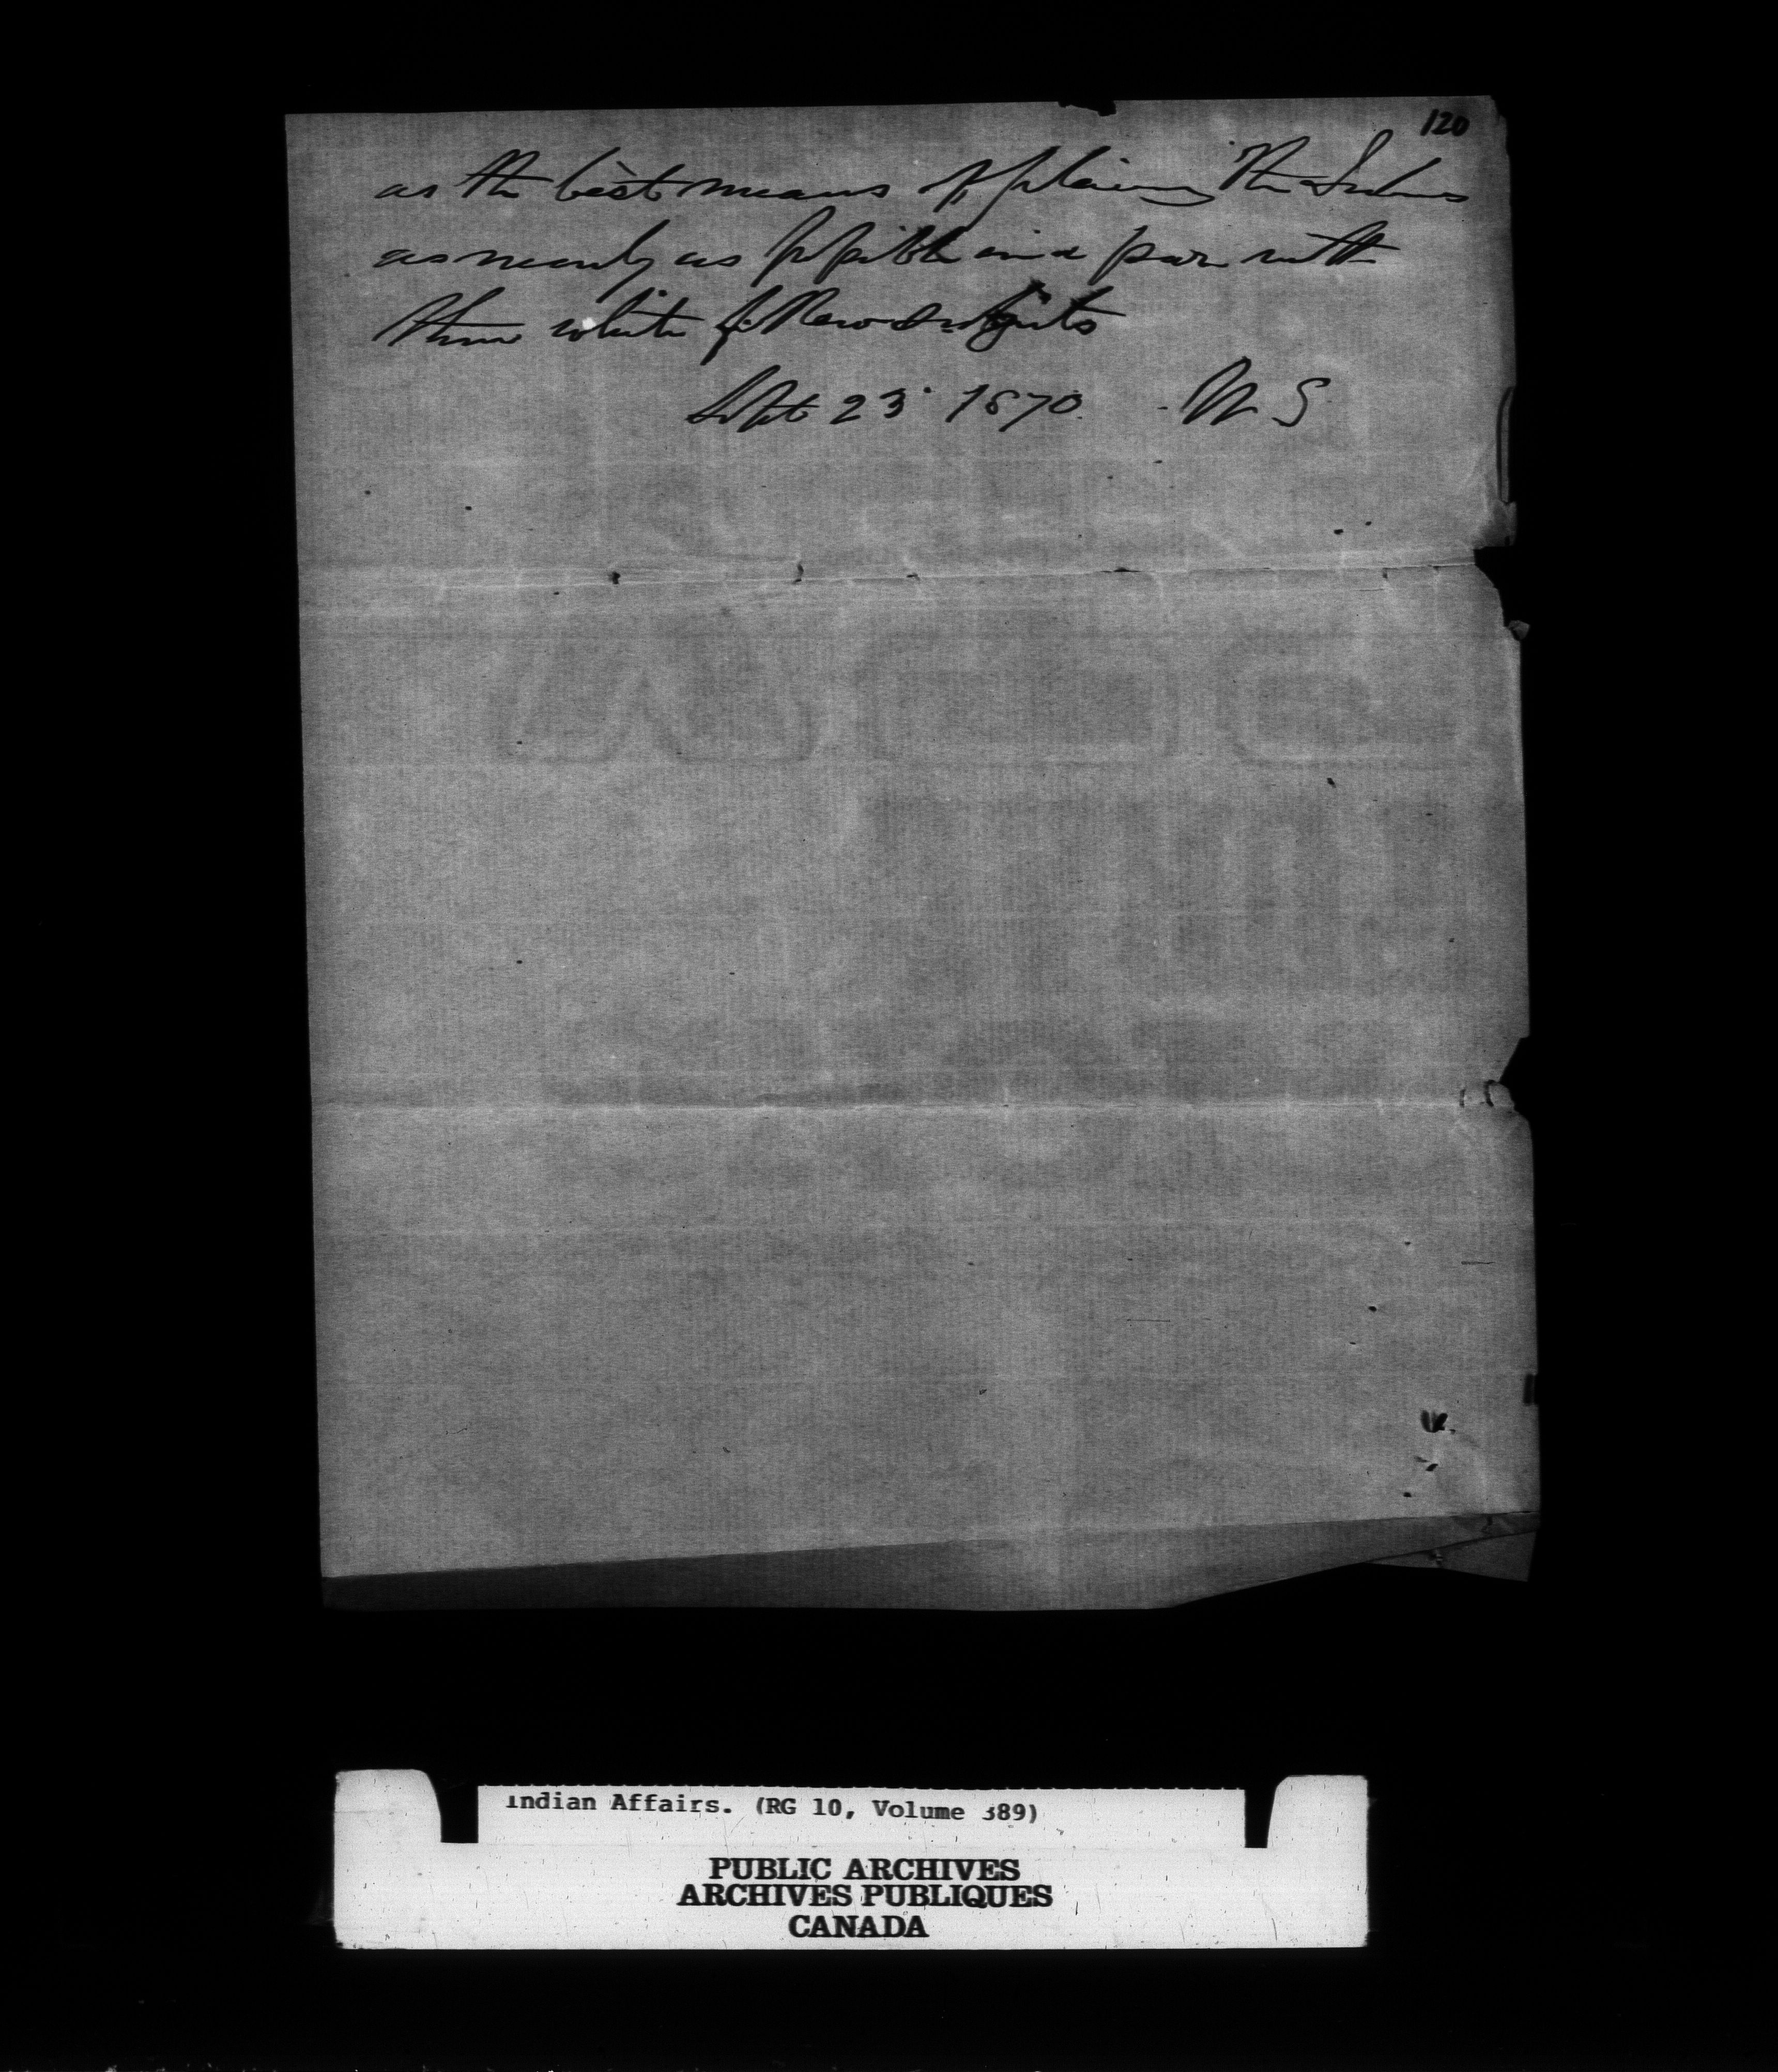 120
as the best means of placing the Indians
as nearly as possible on a par with
their white fellow subjects
Sept 23 1870. W S
Indian Affairs. (RG 10, Volume 389)
PUBLIC ARCHIVES
ARCHIVES PUBLIQUES
CANADA